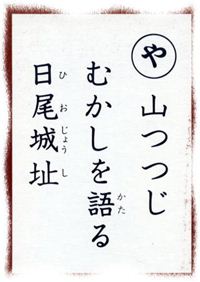 や
山つつじ
むかしを語る
日尾城址
かた
ひおじょうし